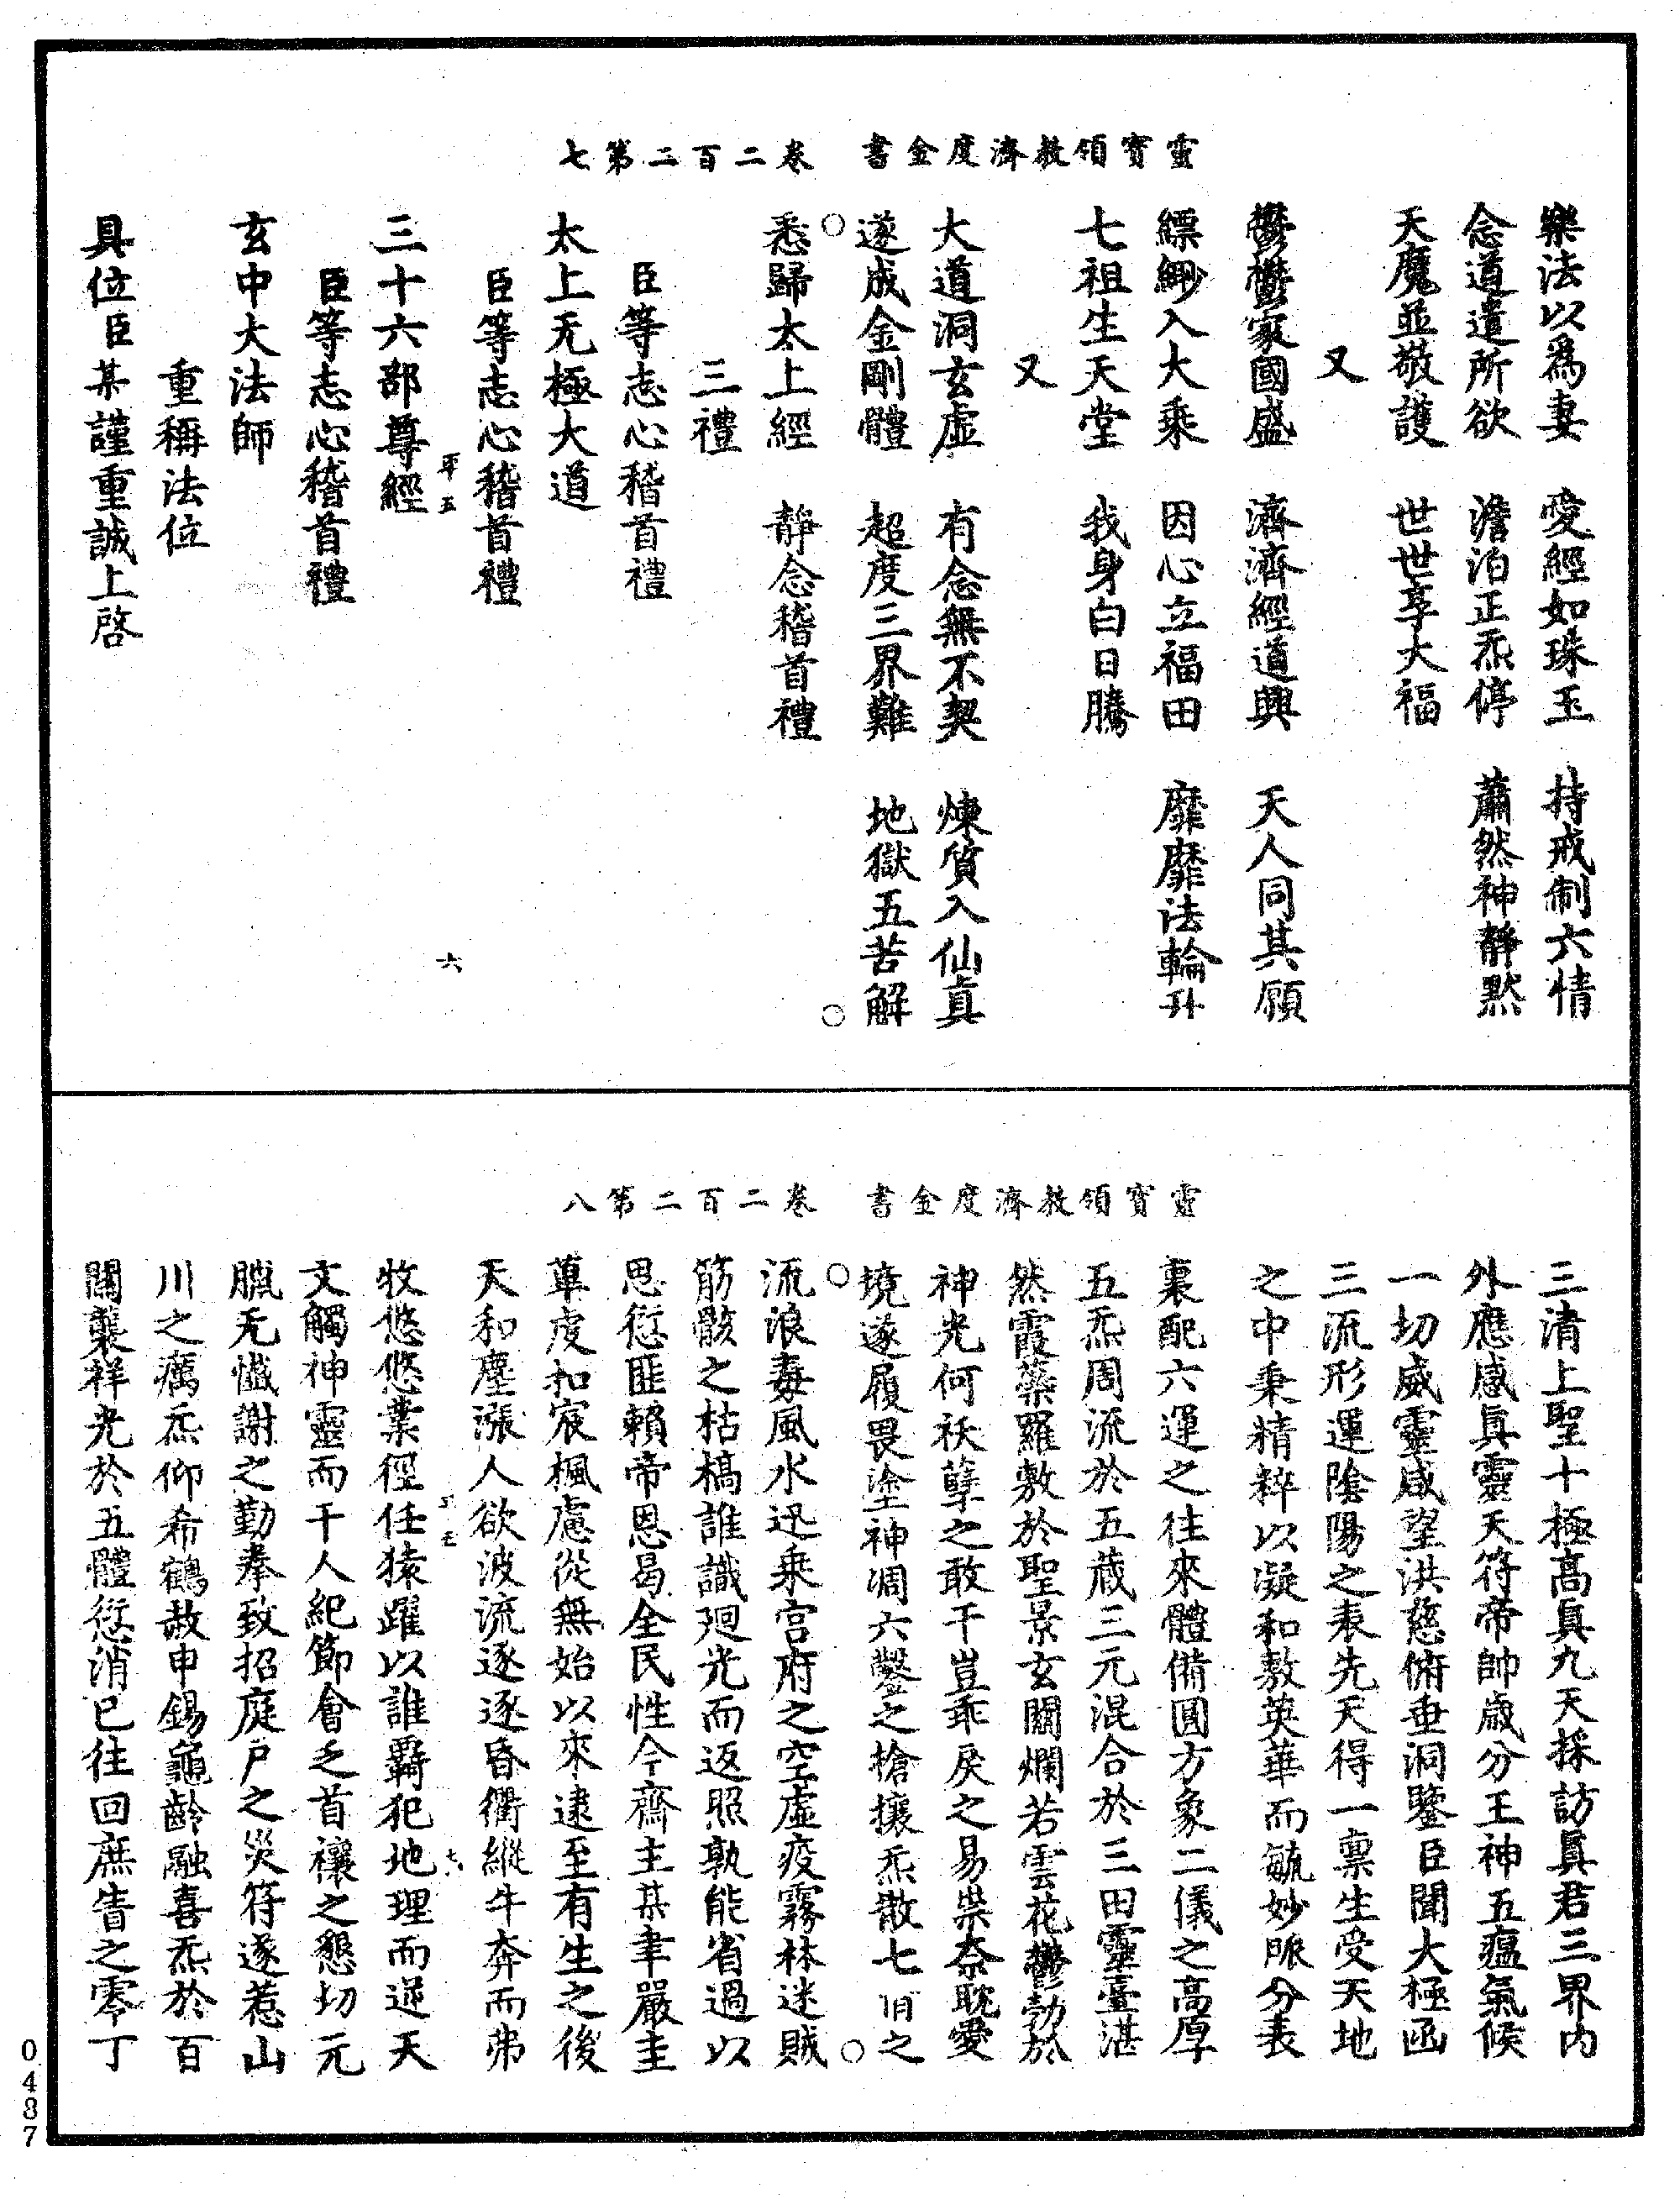 靈寶領教濟度金書 卷二百二第七
樂法以爲妻 愛經如珠玉 持戒制六情
念道遣所欲 澹泊正炁停 蕭然神靜默
天魔並敬護 世世享大福
又
鬱鬱家國盛 濟濟經道興 天人同其願
縹緲入大乘 因心立福田 靡靡法輪升
七祖生天堂 我身白日騰
又
大道洞玄虛 有念無不契 煉質入仙真
遂成金剛體 超度三界難 地獄五苦解
悉歸太上經 靜念稽首禮
三禮
臣等志心稽首禮
太上无極大道
臣等志心稽首禮
三十六部尊經
平五
六
臣等志心稽首禮
玄中大法師
重稱法位
具位臣某謹重誠上啓
靈寶領教濟度金書 卷二百二第八
三清上聖十極高真九天採訪真君三界内
外應感真靈天符帝帥歲分王神五瘟氣候
一切威靈咸望洪慈俯垂洞鑒臣聞大極函
三流形運陰陽之表先天得一禀生受天地
之中秉精粹以凝和敷英華而毓妙脈分表
裏配六運之往來體備圓方象二儀之高厚
五炁周流於五藏三元混合於三田靈臺湛
然霞蘂羅敷於聖景玄關爛若雲花鬱勃於
神光何祅孽之敢干豈乖戾之易祟奈耽愛
境遂履畏塗神凋六鑿之搶攘炁散七情之
流浪毒風水迅乘宫府之空虛疫霧林迷賊
筋骸之枯槁誰識迴光而返照孰能省過以
思愆匪賴帝恩曷全民性今齋主某聿嚴圭
蓽虔扣宸楓慮從無始以來逮至有生之後
天和塵漲人欲波流逐逐昏衢縱牛奔而弗
牧悠悠業徑任猿躍以誰羈犯地理而逆天
七
文觸神靈而干人紀節會乏首禳之懇切元
臘无懺謝之勤拳致招庭户之災符遂惹山
川之癘炁仰希鶴赦申錫龜齡融喜炁於百
關襲祥光於五體愆消已往回庶眚之零丁
0487